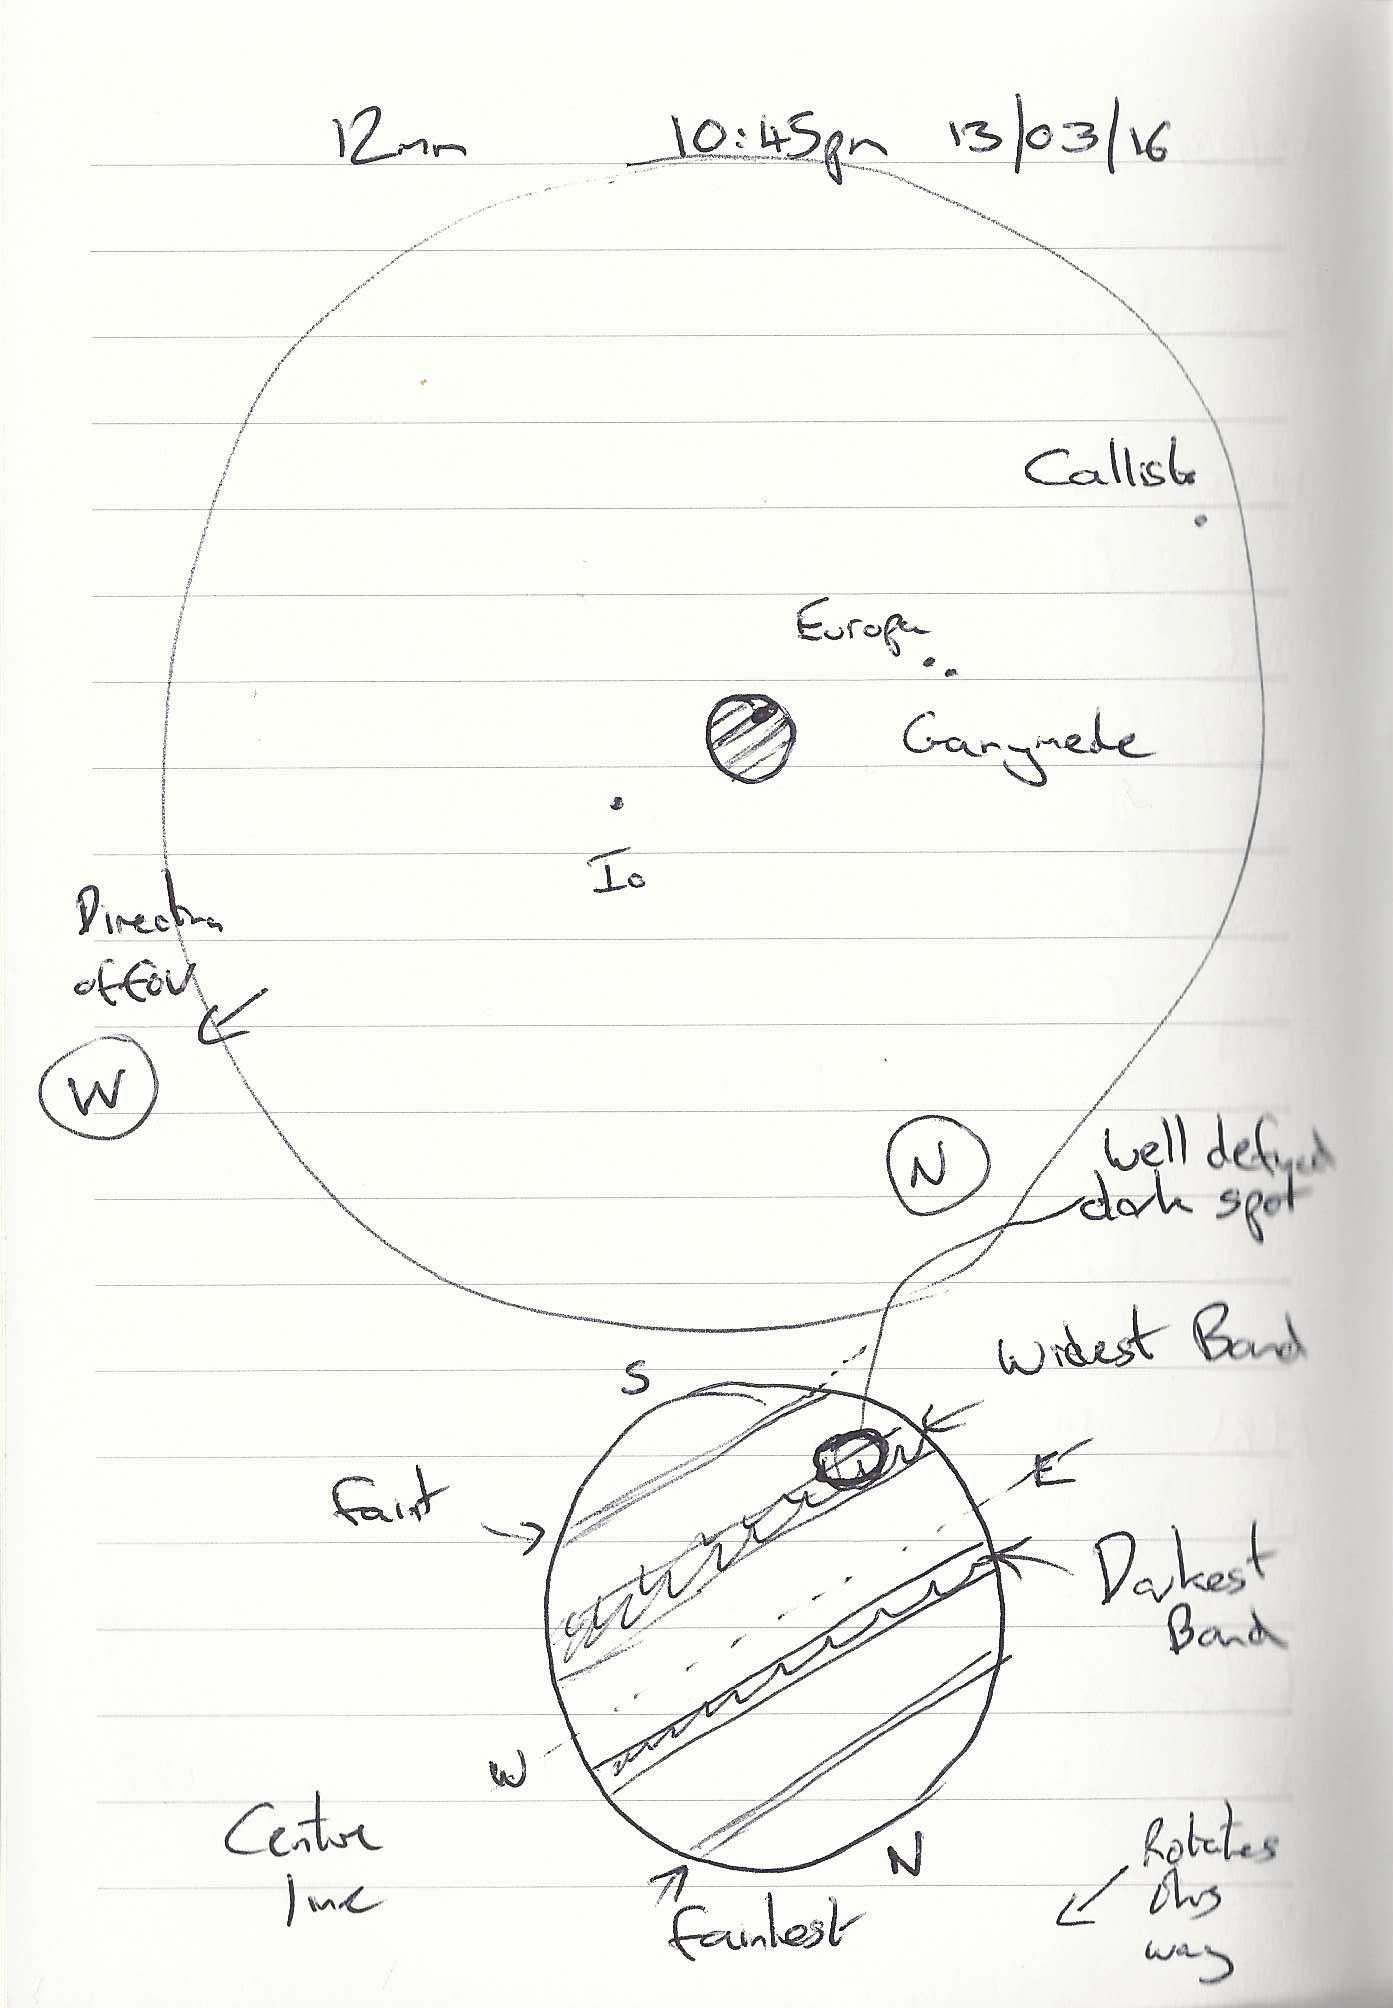 12mm 10:45pm 13/03/16
Callisto
Europa
Ganymede
Io
Direction
of FOV
W
N
Well defined
dark spot
Widest Band
S
E
Faint
Darkest
Band
W
Centre
line
N
Rotates
this
way
Faintest